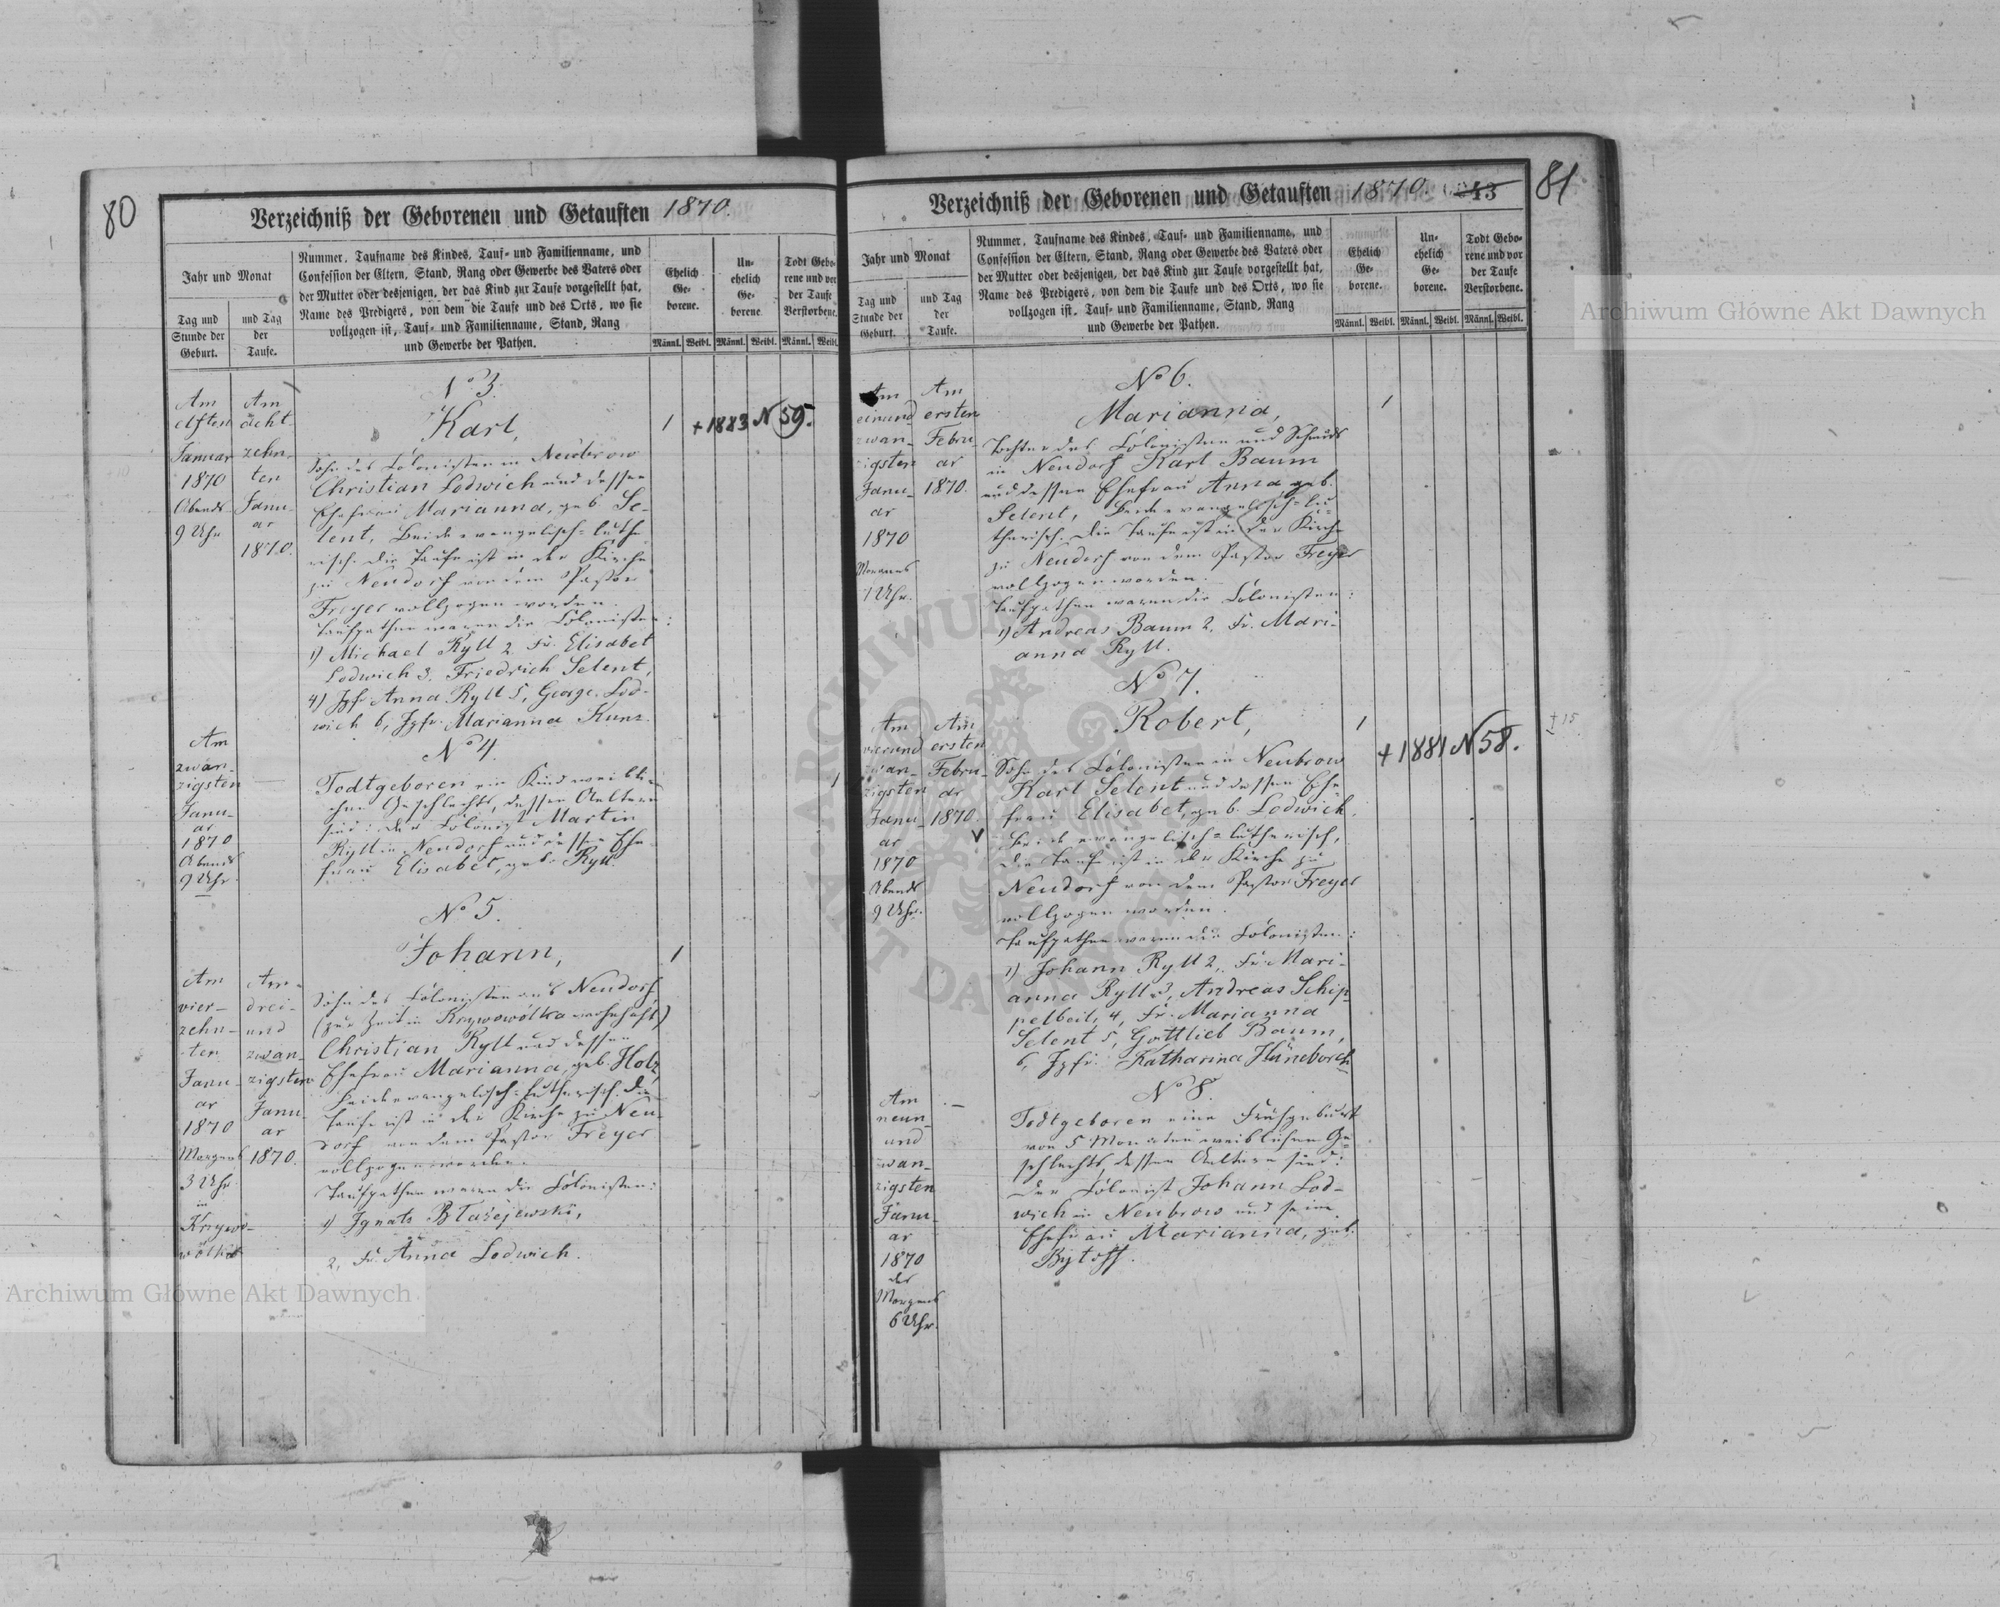 80
Verzeichniß der Geborenen und Getauften 1870.
Jahr und Monat
Tag und Stunde der Geburt.
und Tag der Taufe.
Nummer, Taufname des Kindes, Tauf- und Familienname, und
Confession der Eltern, Stand, Rang oder Gewerbe des Vaters oder
der Mutter oder desjenigen, der das Kind zur Taufe vorgestellt hat,
Name des Predigers, von dem die Taufe und des Orts, wo sie
vollzogen ist, Tauf- und Familienname, Stand, Rang
und Gewerbe der Pathen.
Ehelich Ge- borene.
Un- ehelich Ge- borene
Todt Gebo- rene und vor der Taufe Verstorbene.
Männl. Weibl. Männl. Weibl. Männl. Weibl.
Am
elften
Januar
1870
Abends
9 Uhr
Am
acht-
zehn-
ten
Janu-
ar
1870.
No 3.
Karl,
1 +1883 N 59.
Sohn des Colonisten in Neubrow
Christian Lodwich und dessen
Ehefrau Marianna, geb. Se-
lent, Beide evangelisch-luthe-
risch. Die Taufe ist in der Kirche
zu Neudorf von dem Pastor
Freyer vollzogen worden.
Taufpathen waren die Colonisten:
1) Michael Rytt 2. Fr. Elisabet
Lodwich 3. Friedrich Selent,
4) Jgfr. Anna Rytt 5, George Lod-
wich 6, Jgfr. Marianna Kunz.
Am
zwan-
zigsten
Janu-
ar
1870
Abends
9 Uhr
No 4.
Todtgeboren ein Kind weibli-
chen Geschlechts, dessen Aeltern
sind: der Colonist Martin
Rytt in Neudorf und dessen Ehe-
frau Elisabet, geb. Rytt.
1
No 5.
Johann,
1
Am
vier-
zehn-
ten
Janu-
ar
1870
Morgens
3 Uhr
in
Krzywo-
wólka
Am
drei-
und
zwan-
zigsten
Janu-
ar
1870.
Sohn des Colonisten aus Neudorf
(zur Zeit in Krzywowólka wohnhaft)
Christian Rytt und dessen
Ehefrau Marianna, geb. Holz,
Beide evangelisch-lutherisch. Die
Taufe ist in der Kirche zu Neu-
dorf von dem Pastor Freyer
vollzogen worden.
Taufpathen waren die Colonisten:
1) Ignatz Błażejewski,
2, Fr. Anna Lodwich.
81
Verzeichniß der Geborenen und Getauften 1870. 43
Jahr und Monat
Tag und Stunde der Geburt.
und Tag der Taufe.
Nummer, Taufname des Kindes, Tauf- und Familienname, und
Confession der Eltern, Stand, Rang oder Gewerbe des Vaters oder
der Mutter oder desjenigen, der das Kind zur Taufe vorgestellt hat,
Name des Predigers, von dem die Taufe und des Orts, wo sie
vollzogen ist, Tauf- und Familienname, Stand, Rang
und Gewerbe der Pathen.
Ehelich Ge- borene.
Un- ehelich Ge- borene.
Todt Gebo- rene und vor der Taufe Verstorbene.
Männl. Weibl. Männl. Weibl. Männl. Weibl.
Am
einund
zwan-
zigsten
Janu-
ar
1870
Morgens
1 Uhr.
Am
ersten
Febru-
ar
1870.
No 6.
Marianna,
1
Tochter des Colonisten und Schmids
in Neudorf Karl Baum
und dessen Ehefrau Anna geb.
Selent, Beide evangelisch-lu-
therisch. Die Taufe ist in der Kirche
zu Neudorf von dem Pastor Freyer
vollzogen worden.
Taufpathen waren die Colonisten:
1) Andreas Baum 2. Fr. Mari-
anna Rytt.
No 7.
Robert,
1
+1881 N 58.
Am
vierund
zwan-
zigsten
Janu-
ar
1870
Abends
9 Uhr.
Am
ersten
Febru-
ar
1870.
Sohn des Colonisten in Neubrow
Karl Selent und dessen Ehe-
frau Elisabet, geb. Lodwich,
Beide evangelisch-lutherisch,
die Taufe ist in der Kirche zu
Neudorf von dem Pastor Freyer
vollzogen worden.
Taufpathen waren die Colonisten:
1) Johann Rytt 2, Fr. Mari-
anna Rytt 3, Andreas Schip-
pelbeil, 4, Fr. Marianna
Selent 5, Gottlieb Baum,
6, Jgfr. Katharina Hüneborch
Am
neun-
und
zwan-
zigsten
Janu-
ar
1870
des
Morgens
6 Uhr.
No 8.
Todtgeboren eine Frühgeburt
von 5 Monaten weiblichen Ge-
schlechts, dessen Aeltern sind:
Der Colonist Johann Lod-
wich in Neubrow und seine
Ehefrau Marianna, geb.
Bytoff.
Archiwum Główne Akt Dawnych
Archiwum Główne Akt Dawnych